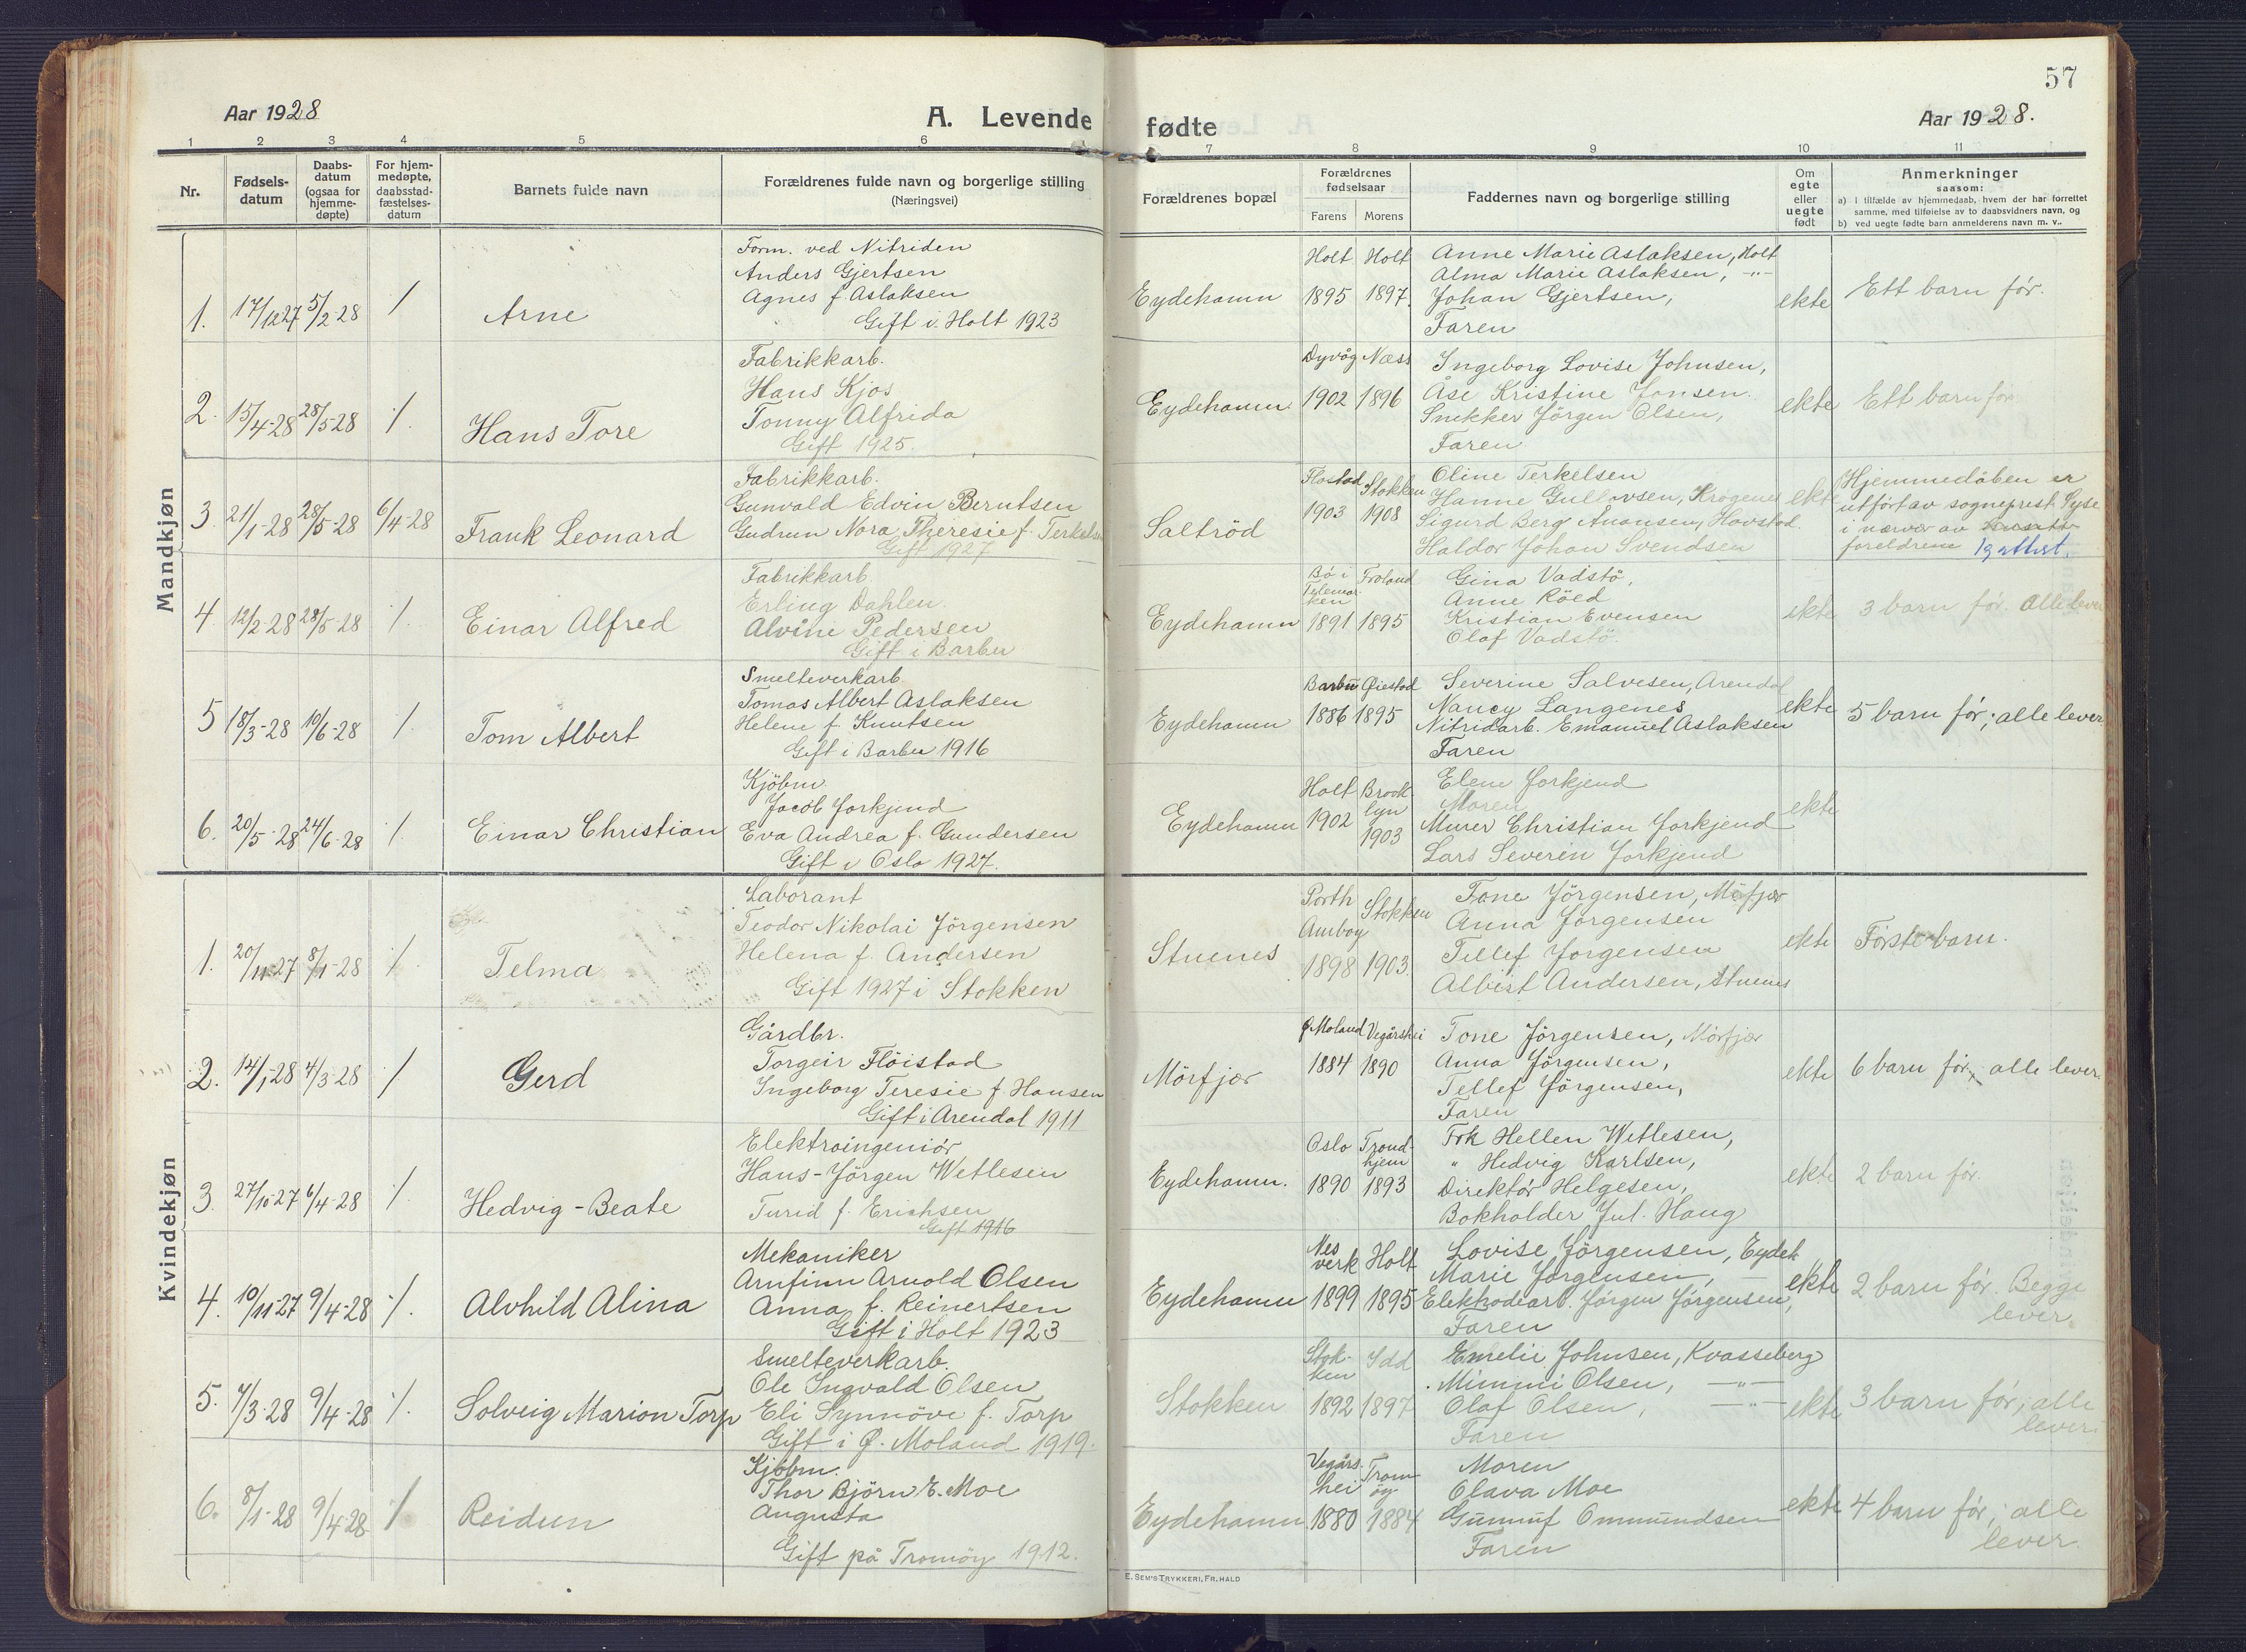 57
Aar 1928
A. Levende fødte
Aar 1928.
1 2 3 4 5 6 7 8 9 10 11
Nr.
Fødsels-
datum
Daabs-
datum
(ogsaa for
hjemme-
døpte)
For hjem-
medøpte,
daabsstad-
fæstelses-
datum
Barnets fulde navn
Forældrenes fulde navn og borgerlige stilling
(Næringsvei)
Forældrenes bopæl
Forældrenes
fødselsaar
Farens Morens
Faddernes navn og borgerlige stilling
Om
egte
eller
uegte
født
Anmerkninger
saasom:
a) i tilfælde av hjemmedaab, hvem der har forrettet
samme, med tilføielse av to daabsvidners navn, og
b) ved uegte fødte barn anmelderens navn m. v..
Mandkjøn
1. 17/12 27 5/2-28 /
Arne
Form. ved Nitriden
Anders Gjertsen
Agnes f. Aslaksen
Gift i Holt 1923
Eydehamn
Holt Holt
1895 1897.
Anne Marie Aslaksen, Holt
Alma Marie Aslaksen, -"-
Johan Gjertsen,
Faren
ekte
Ett barn før.
2. 15/4-28 28/5 28 /.
Hans Tore
Fabrikkarb.
Hans Kjos
Tonny Alfrida
Gift 1925.
Eydehamn
Dyvåg Næss
1902 1896
Ingeborg Lovise Johnsen,
Åse Kristine Jonsen.
Snikker Jörgen Olsen,
Faren
ekte
Ett barn før
3. 21/1-28 28/5-28 6/4-28
Frank Leonard
Fabrikkarb.
Gunvald Edvin Berntsen
Gudrun Nora Theresie f. Terkelsen
Gift 1927
Saltröd
Flostad Stokken
1903 1908
Oline Terkelsen
Hanne Gullovsen, Krögenes
Sigurd Berg Anansen, Hovstad
Haldor Johan Svendsen
ekte
Hjemmedåben er
utført av sogneprest Tyse
i nærvær av
foreldrene
4. 12/2-28 28/5-28 /.
Einar Alfred
Fabrikkarb.
Erling Dahlen.
Alvine Pedersen
Gift i Barbu
Eydehamn
Bö i Telemarken Froland
1891 1895
Gina Vadstö,
Anne Röed
Kristian Evensen
Olaf Vadstö.
ekte
3 barn før. alle lever
5 18/3-28 10/6-28 /.
Tom Albert
Smelteverkarb.
Tomas Albert Aslaksen
Helene f. Knutsen
Gift i Barbu 1916
Eydehamn
Barbu Øiestad
1886 1895
Severine Salvesen, Arendal
Nancy Langenes
Nitridarb. Emanuel Aslaksen
Faren
ekte
5 barn før; alle lever
6. 20/5-28 24/6-28 /.
Einar Christian
Kjöbm.
Jacob Jorkjend
Eva Andrea f. Gundersen
Gift i Oslo 1927.
Eydehamn
Holt Brooklyn
1902 1903
Elene Jorkjend
Moren
Murer Christian Jorkjend
Lars Severin Jorkjend
ekte
Kvindekjøn
1. 20/11-27 8/1-28 /.
Telma
Laborant
Teodor Nikolai Jörgensen
Helena f. Andersen
Gift 1927 i Stokken
Stuenes
Porth Amboy Stokken
1898 1903.
Tone Jörgensen, Mörfjær
Anna Jörgensen
Tellef Jorgensen
Albert Andersen, Stuenes
ekte
Første barn.
2. 14/1-28 4/3-28 /
Gerd
Gårdbr.
Torgeir Flöistad
Ingeborg Teresie f Hansen
Gift i Arendal 1911
Mörfjær
Ø Moland Vegårshei
1884 1890
Tone Jörgensen, Mörfjær
Anna Jörgensen,
Tellef Jörgensen,
Faren
ekte
6 barn før, alle lever.
3. 27/10-27 6/4-28 /.
Hedvig-Beate
Elektroingeniör
Hans-Jörgen Wetlesen
Turid f. Erichsen
Gift 1916
Eydehamn.
Oslo Trondhjem
1890 1893
Frk Hellen Wetlesen,
" Hedvig Karlsen,
Direktör Helgesen,
Bokholder Jul. Haug
ekte
2 barn før.
4. 10/11-27 9/4-28 /.
Alvhild Alina
Mekaniker
Arnfinn Arnold Olsen
Anna f. Reinertsen
Gift i Holt 1923
Eydehamn
Nes verk Holt
1899 1895
Lovise Jörgensen, Eydeh
Marie Jorgensen, —
Elektrodearb. Jörgen Jörgensen,
Faren
ekte
2 barn før. Begge
lever.
5. 7/3-28 9/4-28 /.
Solveig Marion Torp
Smelteverkarb.
Ole Ingvald Olsen
Eli Synnöve f. Torp
Gift i Ø. Moland 1919.
Stokken
Stokken Idd
1892 1897
Emelie Johnsen, Kvasseberg
Mimmi Olsen, -"-
Olaf Olsen, -"-
Faren
ekte
3 barn før; alle
lever
6. 8/1-28 9/4-28 /
Reidun
Kjöbm.
Thor Björn E. Moe
Augusta
Gift på Tromöy 1912.
Eydehamn
Vegårshei Tromöy
1880 1884
Moren
Olava Moe
Gunnuf Ommundsen
Faren
ekte
4 barn før; alle
lever.
E. SEM'S TRYKKERI, FR. HALD